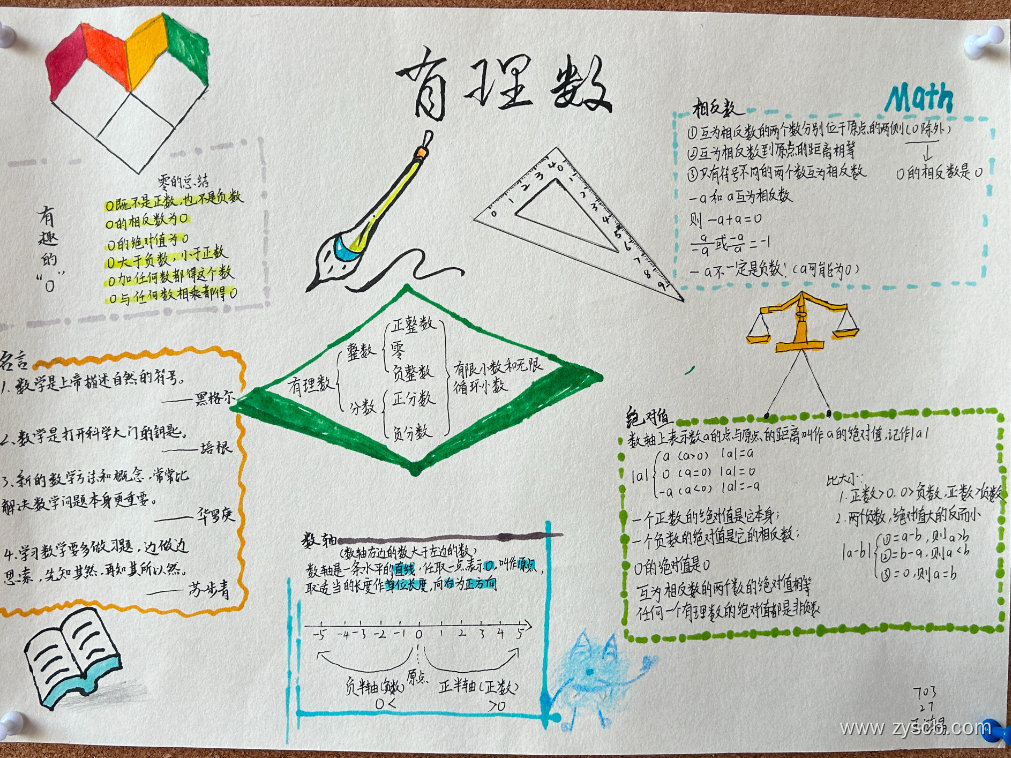 有理数
Math
零的总结
有趣的"0"
0既不是正数,也不是负数
0的相反数为0
0的绝对值为0
0大于负数,小于正数
0加任何数都得这个数
0与任何数相乘都得0
相反数
①互为相反数的两个数分别位于原点的两侧(0除外)
②互为相反数到原点的距离相等
③只有符号不同的两个数互为相反数
0的相反数是0
-a和a互为相反数
则-a+a=0
a/-a或-a/a=-1
-a不一定是负数!(a可能为0)
0 1 2 3 4 0 1 2 3 4 5 6 7 8 9
名言
1.数学是上帝描述自然的符号。
——黑格尔
2.数学是打开科学大门的钥匙。
——培根
3.新的数学方法和概念,常常比
解决数学问题本身更重要。
——华罗庚
4.学习数学要多做习题,边做边
思索,先知其然,再知其所以然。
——苏步青
有理数
整数
正整数
零
负整数
分数
正分数
负分数
有限小数和无限
循环小数
数轴
(数轴右边的数大于左边的数)
数轴是一条水平的直线,任取一点表示0,叫作原点,
取适当的长度作单位长度,向右为正方向
-5 -4 -3 -2 -1 0 1 2 3 4 5
原点
负半轴(负数)
0<
正半轴(正数)
>0
绝对值
数轴上表示数a的点与原点的距离叫作a的绝对值,记作|a|
|a|
a (a>0) |a|=a
0 (a=0) |a|=0
-a (a<0) |a|=-a
一个正数的绝对值是它本身;
一个负数的绝对值是它的相反数;
0的绝对值是0
互为相反数的两个数的绝对值相等
任何一个有理数的绝对值都是非负数
比大小:
1.正数>0,0>负数,正数>负数
2.两个负数,绝对值大的反而小
|a-b|
①=a-b,则a>b
②=b-a,则a<b
③=0,则a=b
703
27
www.zysc8.com